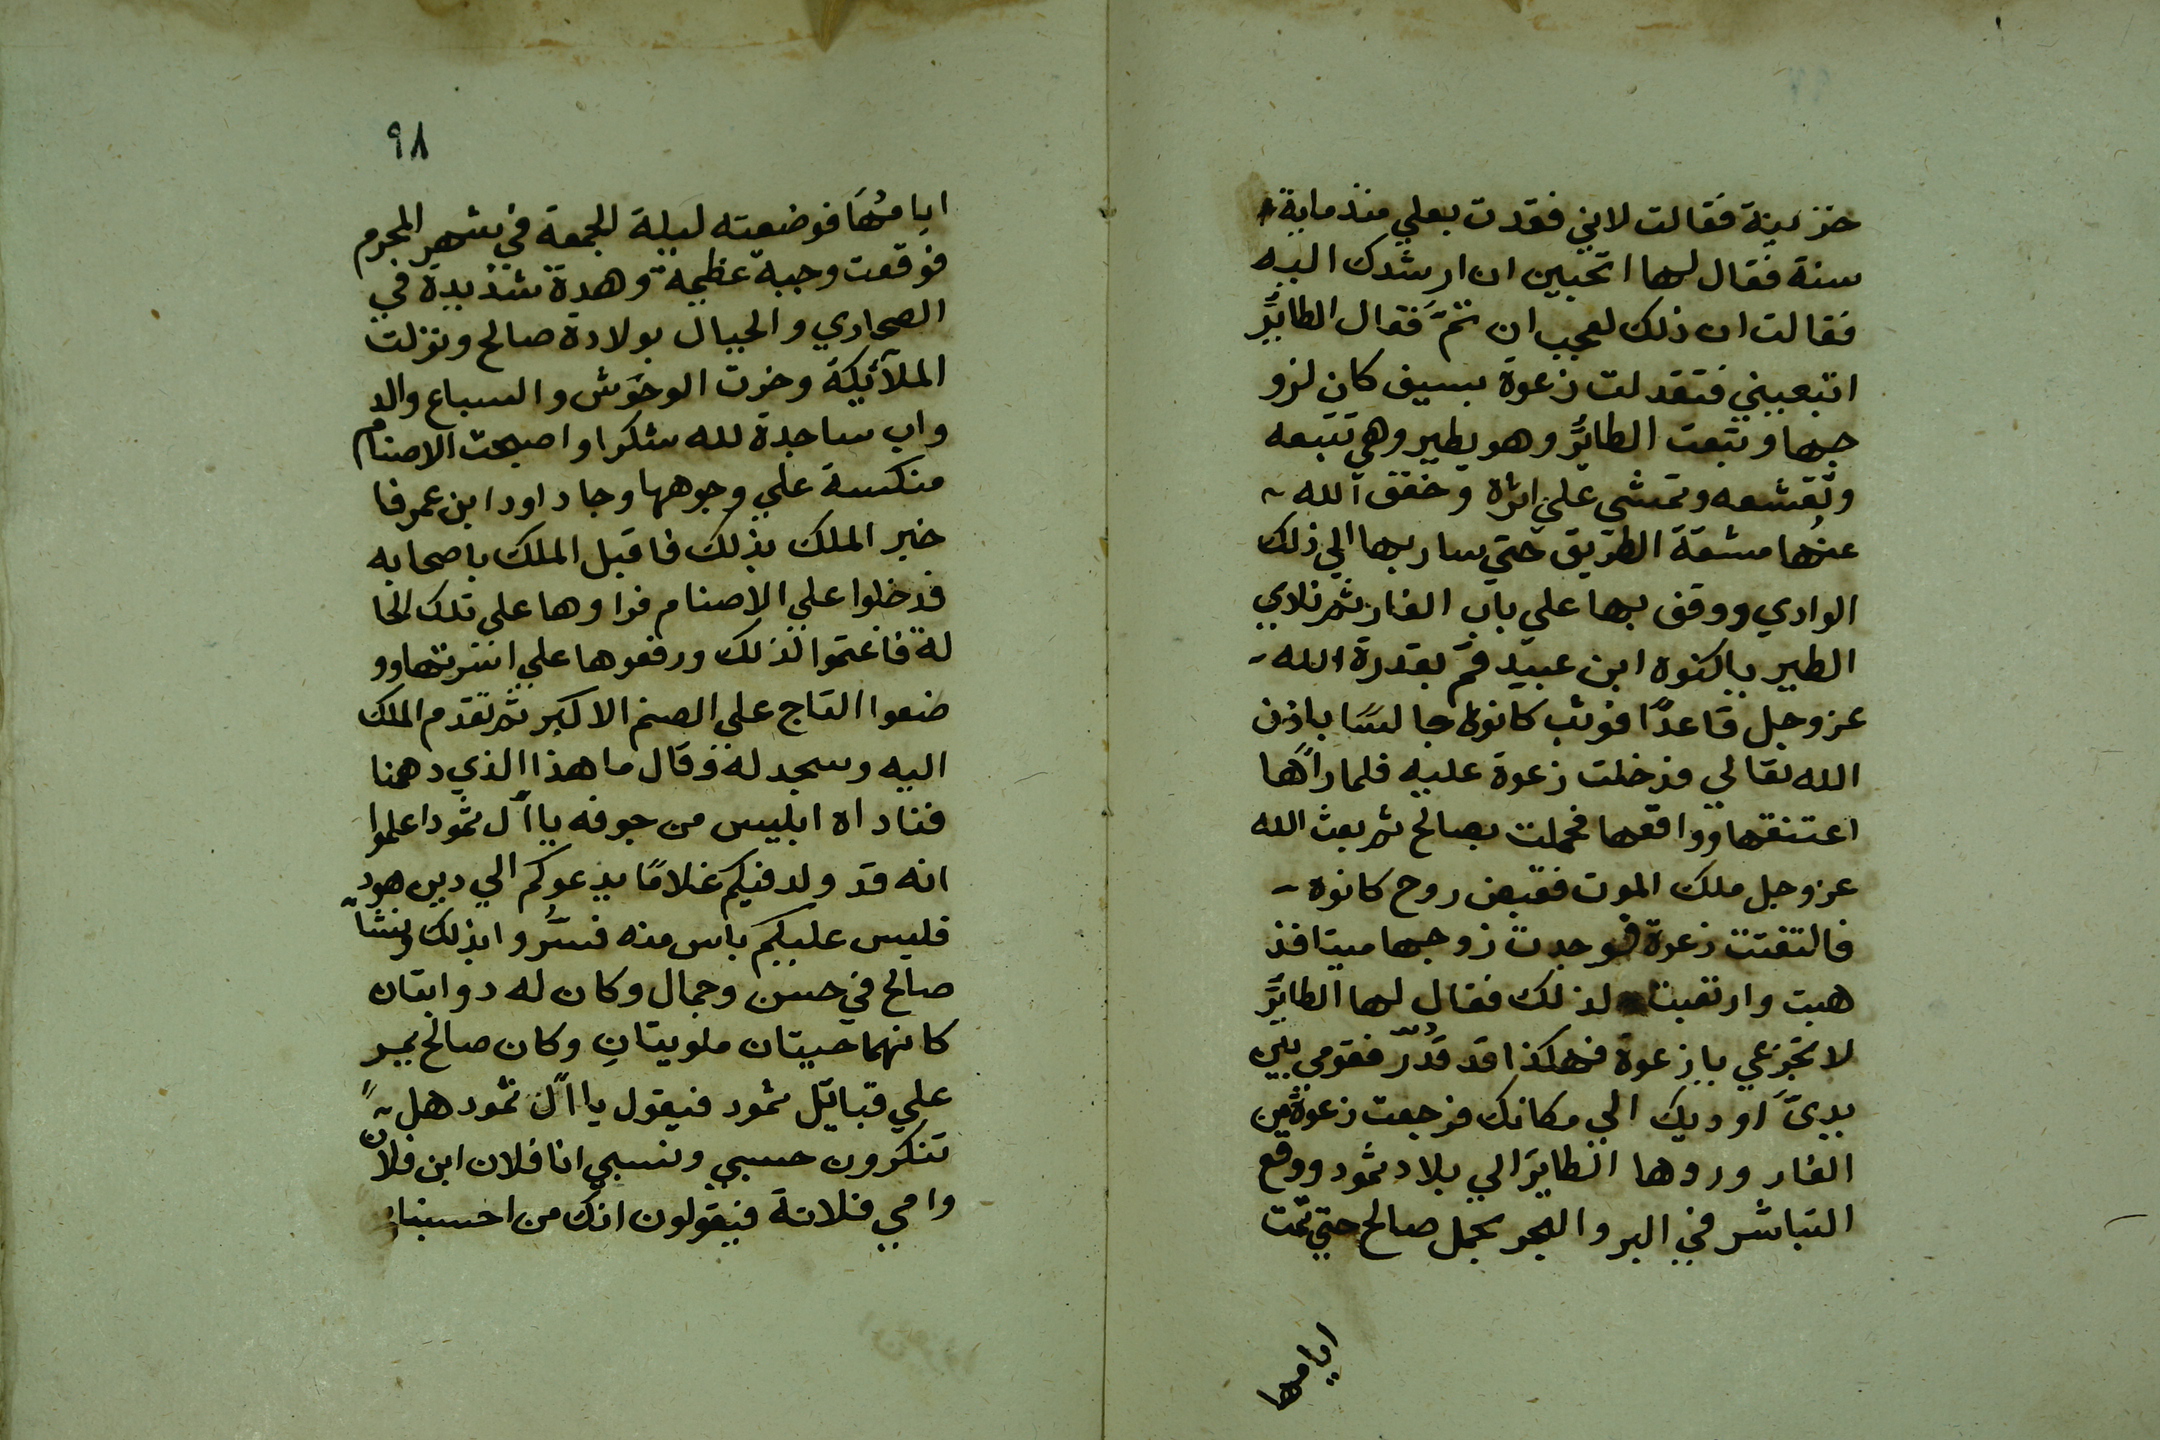 حزينة فقالت لاني فقدت بعلي منذ ماية
سنة فقال لها اتحبين ان ارشدك اليه
فقالت ان ذلك لعجب ان تمَّ فقال الطائرُ
اتبعيني فتقدلت زعوة بسيف كان لزو
جها وتبعت الطائرُ وهو يطير وهي تتبعه
وتقشعه وتمشي علي اثره وخفق الله
عنُها مشقة الطريق حتي سار بها الي ذلك
الوادي ووقف بها علي باب الغار ثم نادي
الطير يا كنوه ابن عبيد قم بقدرة الله
عز وجل قاعدًا فوثب كانوه جالسًا باذن
الله تعالي فدخلت زعوة عليه فلما راًها
اعتنقها وواقعها فحملت بصالح ثم بعث الله
عز وجل ملك الموت فقبض روح كانوه
فالتفتت زعوة فوجدت زوجها ميتا فذ
هبت وارتعبت لذلك فقال لها الطائرُ
لا تجزعي يا زعوة فهكذا قد قُدّر فقومي بين
يديَّ اوديك الي مكانك فرجعت زعوة من
الغار وردها الطاير الي بلاد ثمود ووقع
التباشر في البر والبحر بحمل صالح حتي تمت
ايامها
٩٨
ايامُهَا فوضعته ليلة الجمعة في شهر المحرم
فوقعت وجبة عظيمة وهدة شديدة في
الصحاري والجبال بولادة صالح ونزلت
الملآئيكة وخرت الوحوش والسباع والد
واب ساجدة لله شكرا واصبحت الاصنام
منكسة علي وجوهها وجا داود ابن عمر فا
خبر الملك بذلك فاقبل الملك باصحابه
فدخلوا علي الاصنام فراوها علي تلك الحا
لة فاغتموا لذلك ورفعوها علي اسرتها وو
ضعوا التاج علي الصنم الاكبر ثم تقدم الملك
اليه وسجد له وقال ما هذا الذي دهمنا
فناداه ابليس من جوفه يا اّل ثمود اعلموا
انه قد ولد فيكم غلامًا يدعوكم الي دين هود
فليس عليكم باس منه فسُّروا بذلك ونشا
صالح في حسن وجمال وكان له دوابتان
كانهما حيتان ملويتانِ وكان صالح يمر
علي قبائل ثمود فيقول يا اًل ثمود هل
تنكرون حسبي ونسبي انا فلان ابن فلان
وامي فلانة فيقولون انك من احسبنا